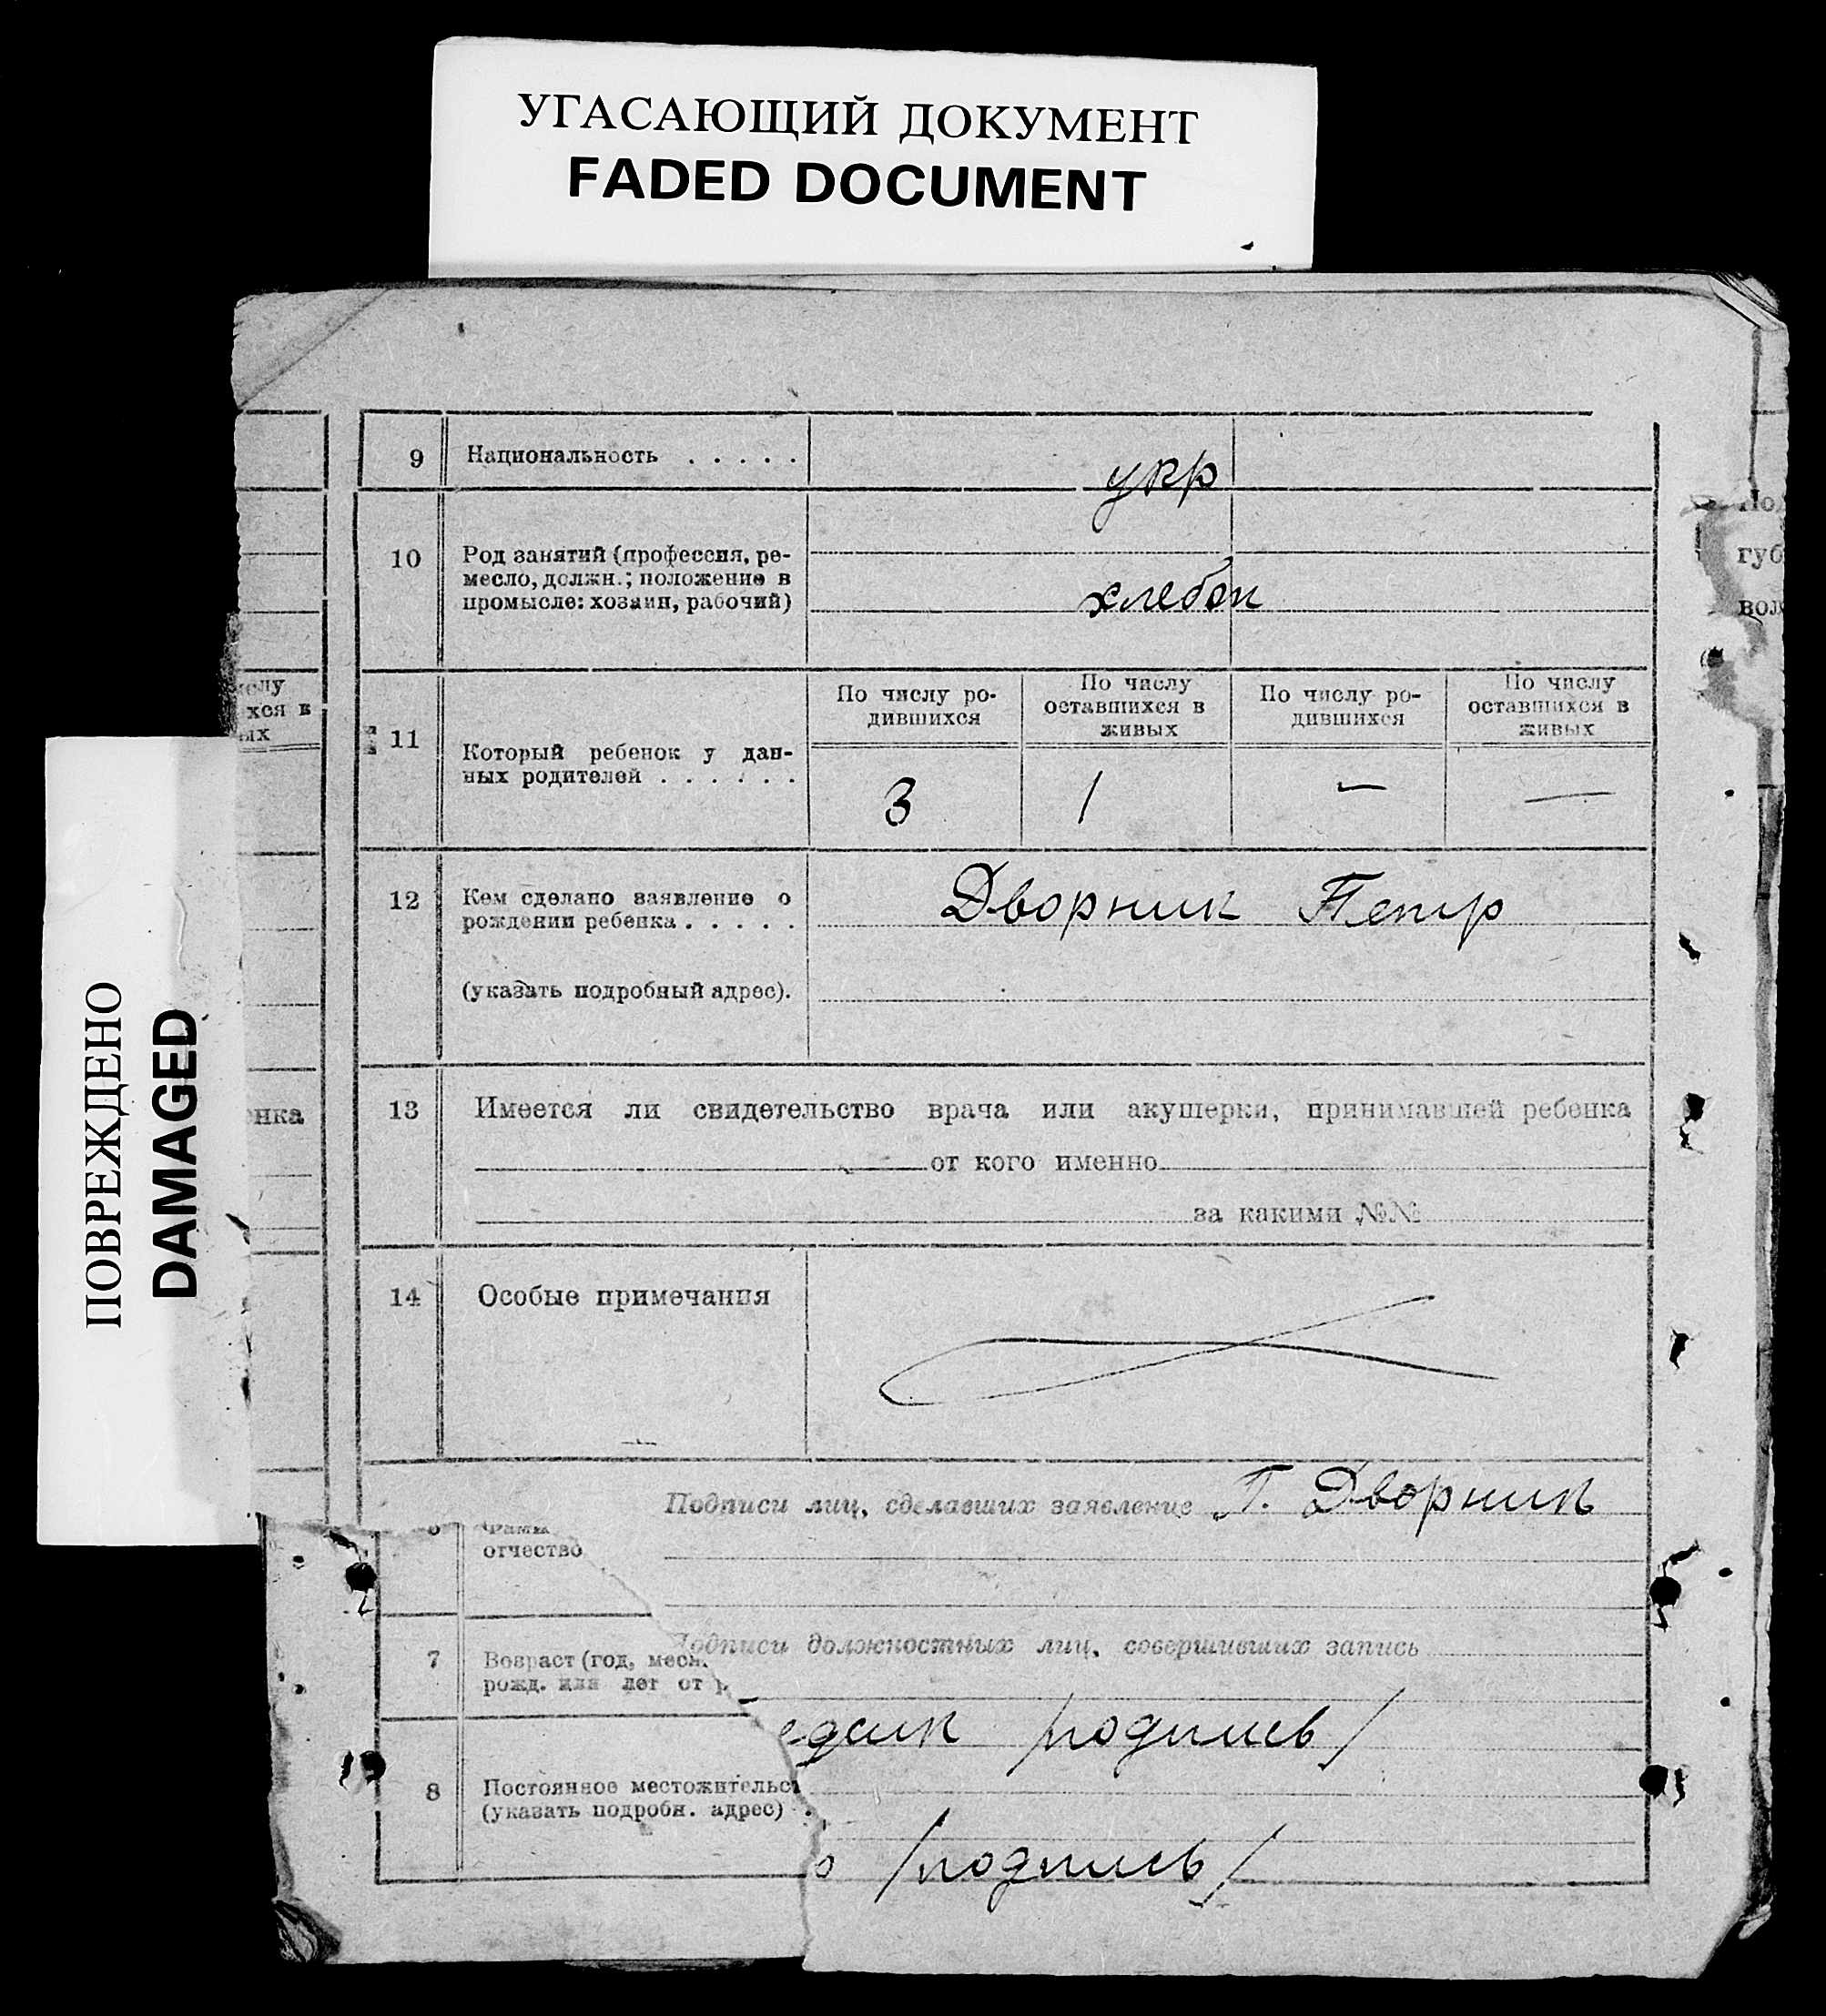 УГАСАЮЩИЙ ДОКУМЕНТ
FADED DOCUMENT
ПОВРЕЖДЕНО
DAMAGED
9 Национальность . . . . .
укр
10 Род занятий (профессия, ре-
месло, должн.; положение в
промысле: хозяин, рабочий)
хлебоп
11 Который ребенок у дан-
ных родителей . . . . . .
По числу ро-
дившихся
По числу
оставшихся в
живых
По числу ро-
дившихся
По числу
оставшихся в
живых
3 1 — —
12 Кем сделано заявление о
рождении ребенка . . . . .
Дворник Петр
(указать подробный адрес).
13 Имеется ли свидетельство врача или акушерки, принимавшей ребенка
от кого именно
за какими №№
14 Особые примечания
Подписи лиц, сделавших заявление П. Дворник
отчество
Подписи должностных лиц, совершивших запись
7 Возраст (год, меся
рожд. или лет от р
/подпись/
8 Постоянное местожительст
(указать подробн. адрес) .
о /подпись/
хся в
ых
енка
губ
вол